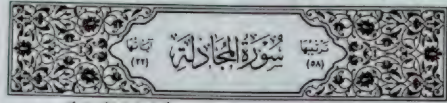 ترتيبها (٥٨) سُورَةُ المُجَادلَة آياتها (٢٢)